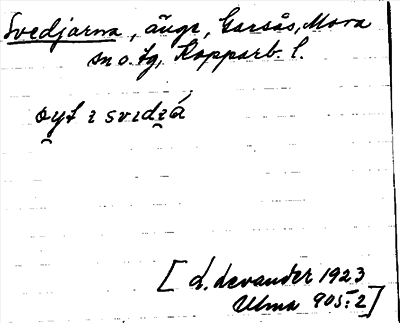 Svedjarna, ängr, Garsås, Mora
sn o. tg, Kopparb. l.
oyt ı svıdıá
[L. Levander 1923
Ulma 905:2]